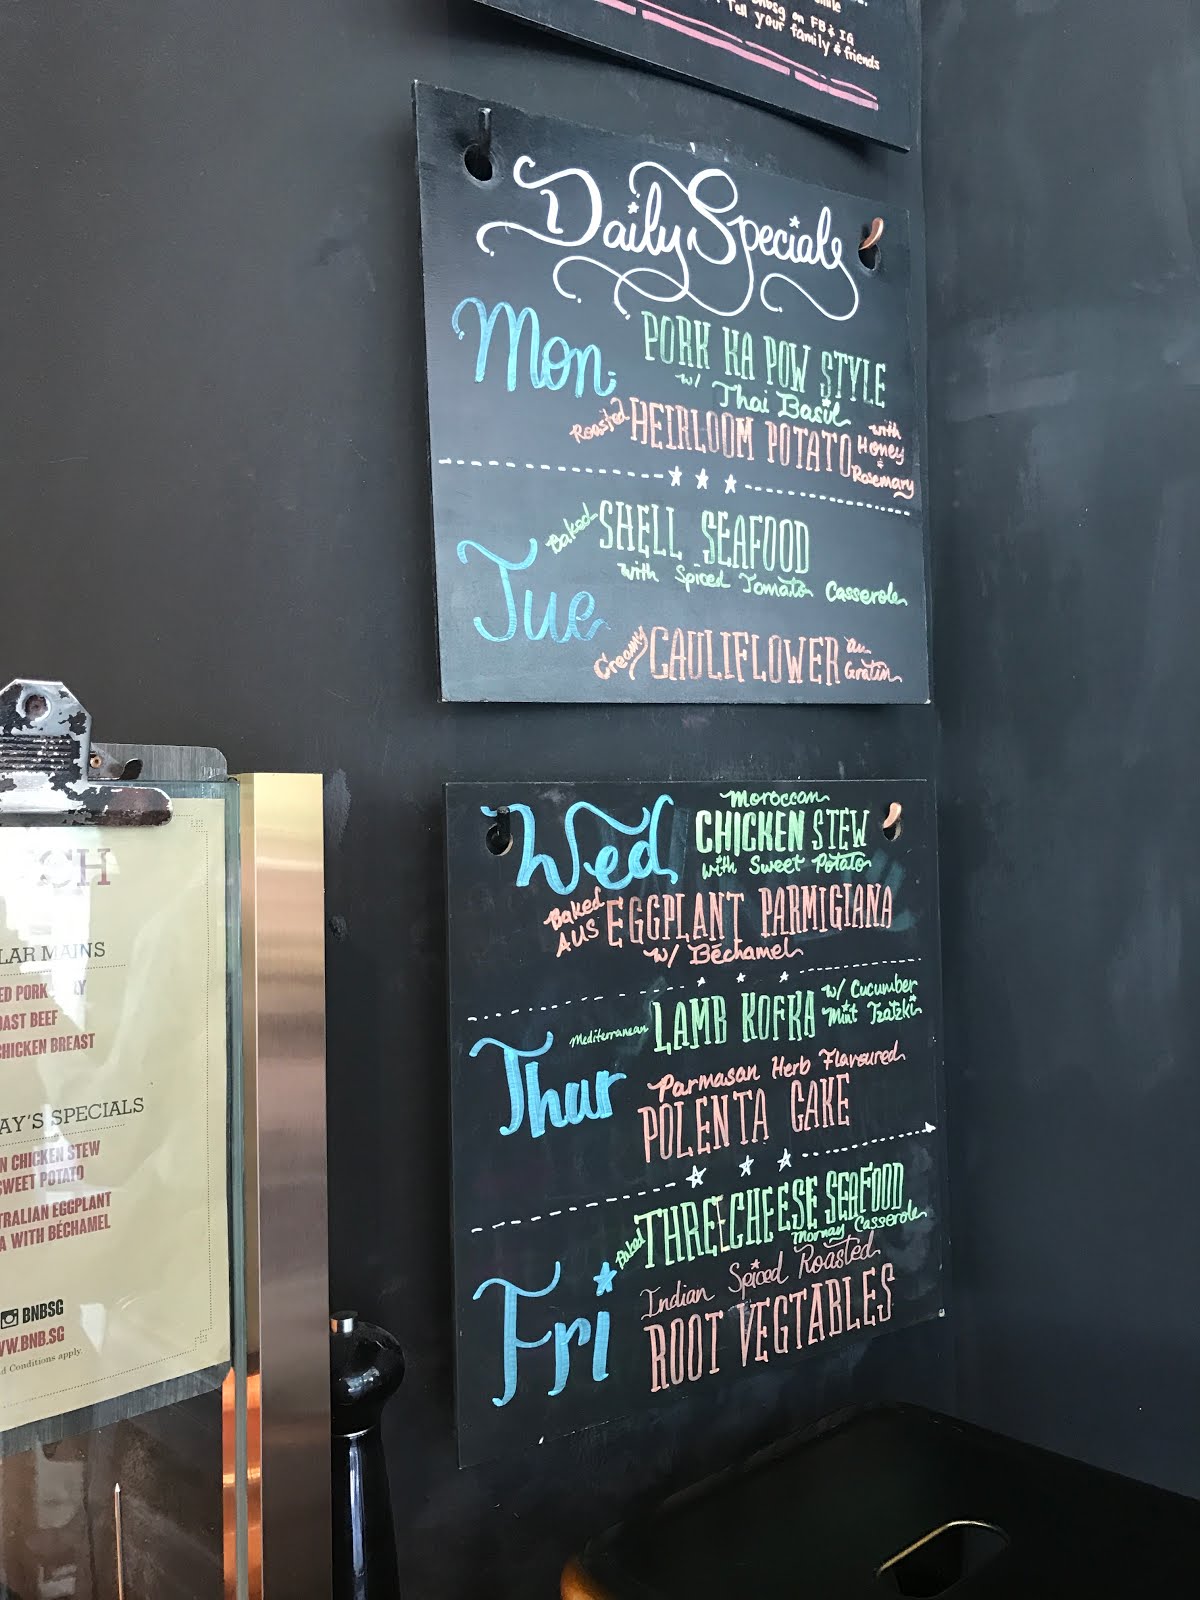 on FB & IG
Tell your family & friends
Daily Specials
Mon
PORK KA POW STYLE
w/ Thai Basil
Roasted HEIRLOOM POTATO with Honey & Rosemary
Tue
Baked SHELL SEAFOOD
with Spiced Tomato Casserole
Creamy CAULIFLOWER au Gratin
Wed
Moroccan
CHICKEN STEW
with Sweet Potato
Baked AUS EGGPLANT PARMIGIANA
w/ Béchamel
Thur
Mediterranean LAMB KOFKA w/ Cucumber Mint Tzatzki
Parmasan Herb Flavoured
POLENTA CAKE
Fri
Baked THREE CHEESE SEAFOOD
Mornay Casserole
Indian Spiced Roasted
ROOT VEGTABLES
MAINS
PORK
BEEF
CHICKEN BREAST
AY'S SPECIALS
CHICKEN STEW
SWEET POTATO
EGGPLANT
WITH BÉCHAMEL
BNBSG
WWW.BNB.SG
Conditions apply.